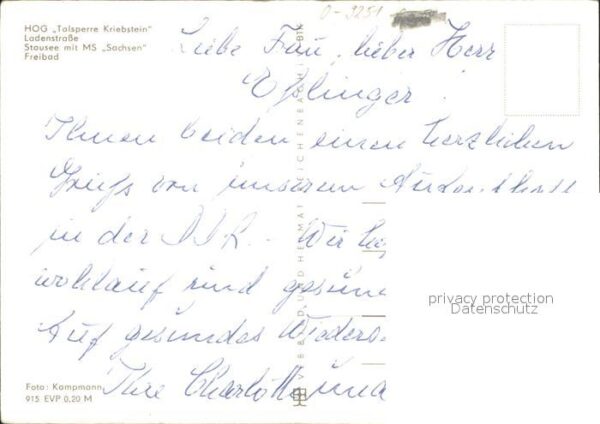 HOG „Talsperre Kriebstein"
Ladenstraße
Stausee mit MS „Sachsen"
Freibad
D-9251
Liebe Frau, lieber Herr
Ihnen beiden einen herzlichen
Gruß von unserem
in der DDR. Wir
wohlauf und
Auf gesundes Wieders
Ihre Charlotte und
BILD UND HEIMAT REICHENBACH I. V.
privacy protection
Datenschutz
Foto: Kampmann
915 EVP 0,20 M